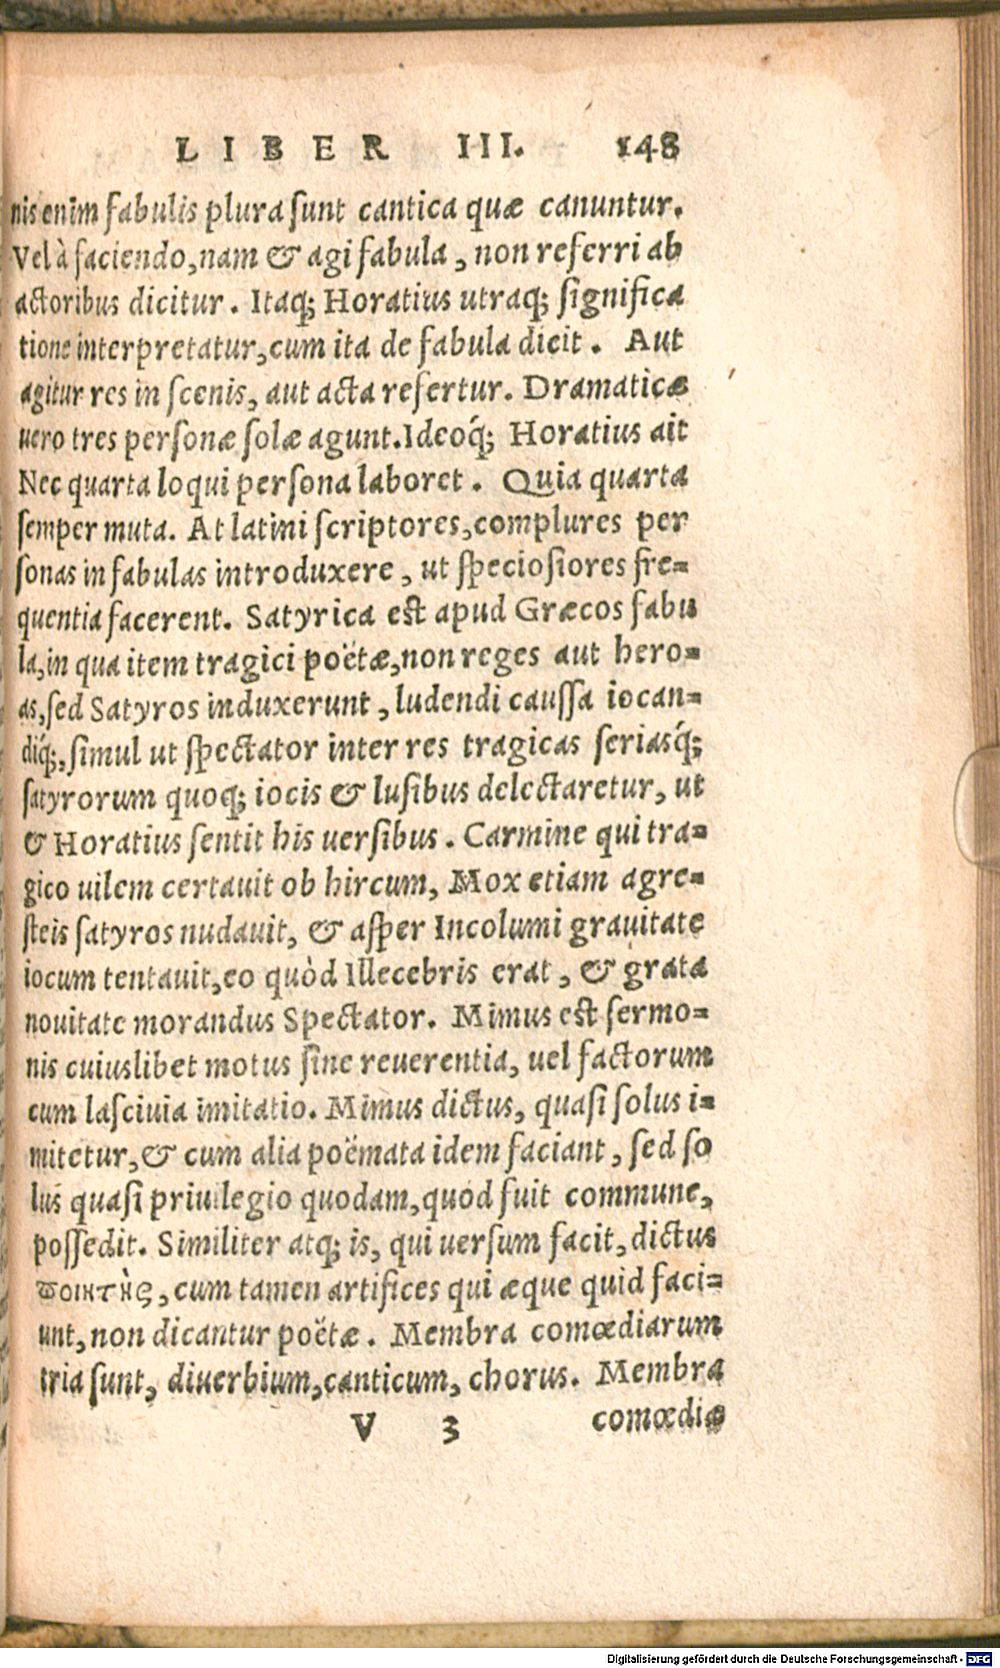 LIBER III. 148
nis enim fabulis plura sunt cantica quæ canuntur.
Vel à faciendo, nam & agi fabula, non referri ab
actoribus dicitur. Itaq; Horatius utraq; significa
tione interpretatur, cum ita de fabula dicit. Aut
agitur res in scenis, aut acta refertur. Dramaticæ
uero tres personæ solæ agunt. Ideoq́; Horatius ait
Nec quarta loqui persona laboret. Quia quarta
semper muta. At latini scriptores, complures per
sonas in fabulas introduxere, ut speciosiores fre=
quentia facerent. Satyrica est apud Græcos fabu
la, in qua item tragici poëtæ, non reges aut hero=
as, sed Satyros induxerunt, ludendi caussa iocan=
diq́;, simul ut spectator inter res tragicas seriasq́;
satyrorum quoq; iocis & lusibus delectaretur, ut
& Horatius sentit his uersibus. Carmine qui tra=
gico uilem certauit ob hircum, Mox etiam agre=
steis satyros nudauit, & asper Incolumi grauitate
iocum tentauit, eo quòd Illecebris erat, & grata
nouitate morandus Spectator. Mimus est sermo=
nis cuiuslibet motus sine reuerentia, uel factorum
cum lasciuia imitatio. Mimus dictus, quasi solus i=
mitetur, & cum alia poëmata idem faciant, sed so
lus quasi priuilegio quodam, quod fuit commune,
possedit. Similiter atq; is, qui uersum facit, dictus
ποιητὴς, cum tamen artifices qui æque quid faci=
unt, non dicantur poëtæ. Membra comœdiarum
tria sunt, diuerbium, canticum, chorus. Membra
V 3 comœdiæ
Digitalisierung gefördert durch die Deutsche Forschungsgemeinschaft - DFG